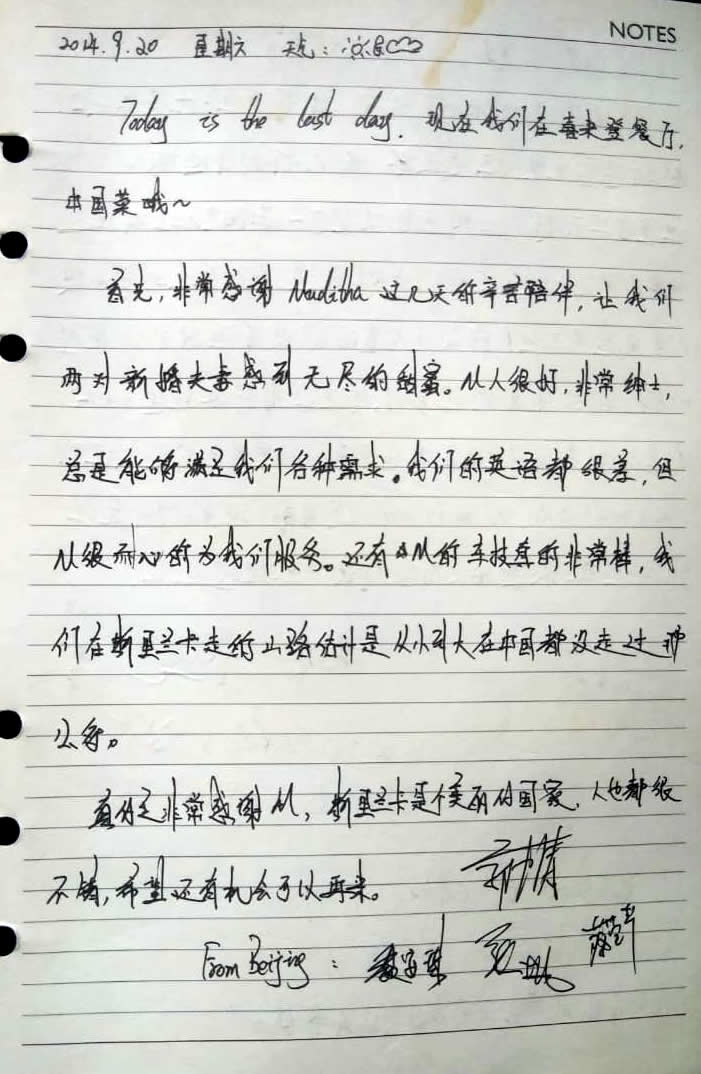 NOTES
2014.9.20 星期六 天气:
Today is the last day. 现在我们在喜来登餐厅,
中国菜哦~
首先,非常感谢 Nuditha 这几天的辛苦陪伴,让我们
两对新婚夫妻感到无尽的甜蜜。M人很好,非常绅士,
总是能够满足我们各种需求。我们的英语都很差,但
M很耐心的为我们服务。还有M的车技真的非常棒,我
们在斯里兰卡走的山路估计是从小到大在中国都没走过那
么多。
真的是非常感谢M,斯里兰卡是个美丽的国家,人也都很
不错,希望还有机会可以再来。
From Beijing: